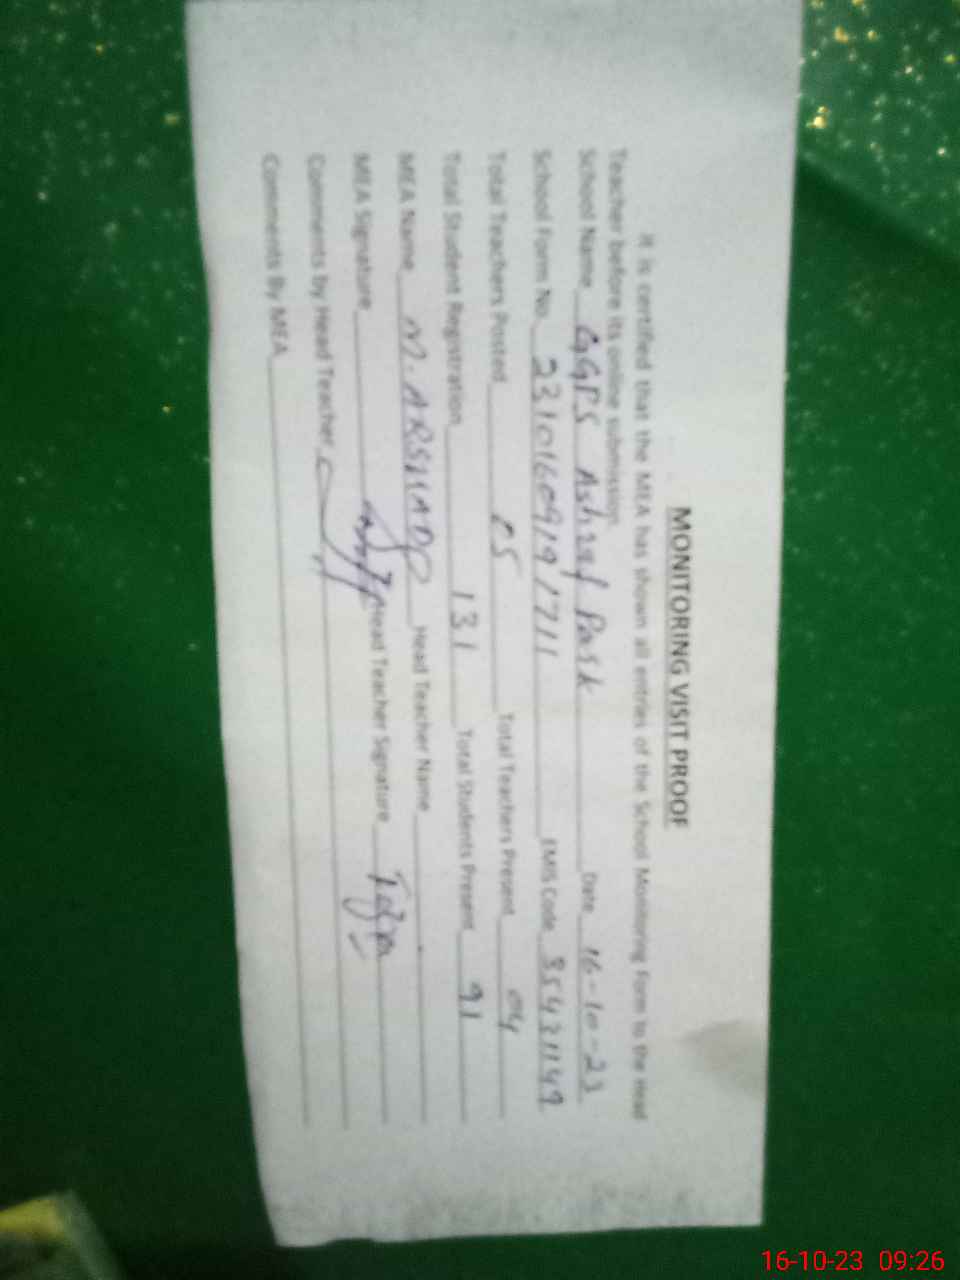 MONITORING VISIT PROOF
It is certified that the MEA has shown all entries of the School Monitoring Form to the Head
Teacher before its online submission.
School Name GGPS Ashraf Park Date 16-10-23
School Form No 2310160919/1711 EMIS Code 35431149
Total Teachers Posted 05 Total Teachers Present 04
Total Student Registration 131 Total Students Present 91
MEA Name M. ARSHAD Head Teacher Name
MEA Signature Head Teacher Signature
Comments by Head Teacher
Comments By MEA
16-10-23 09:26